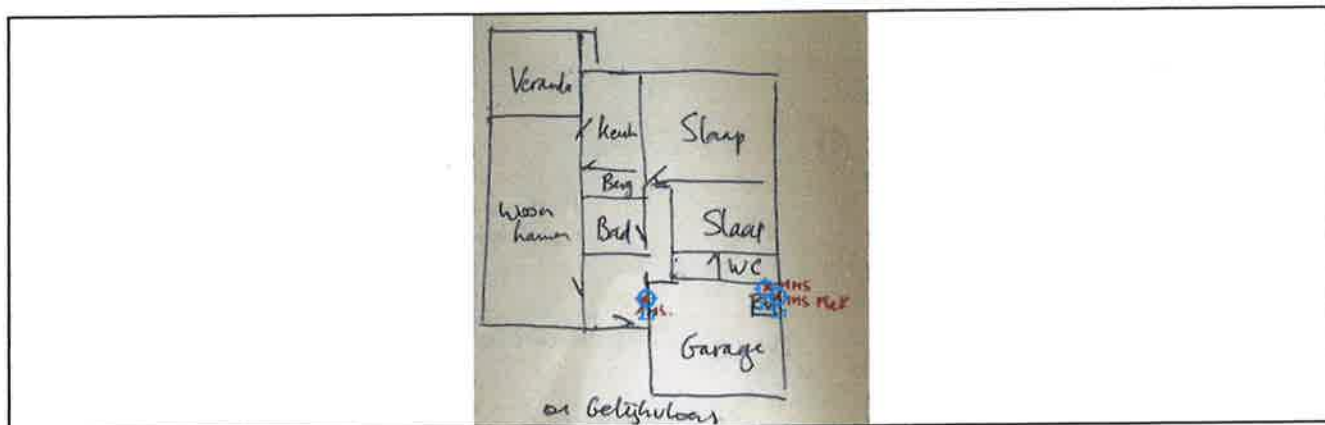 Veranda
Keuk
Slaap
Berg
Woon
kamer
Bad
Slaap
WC
Garage
Gelijkvloers